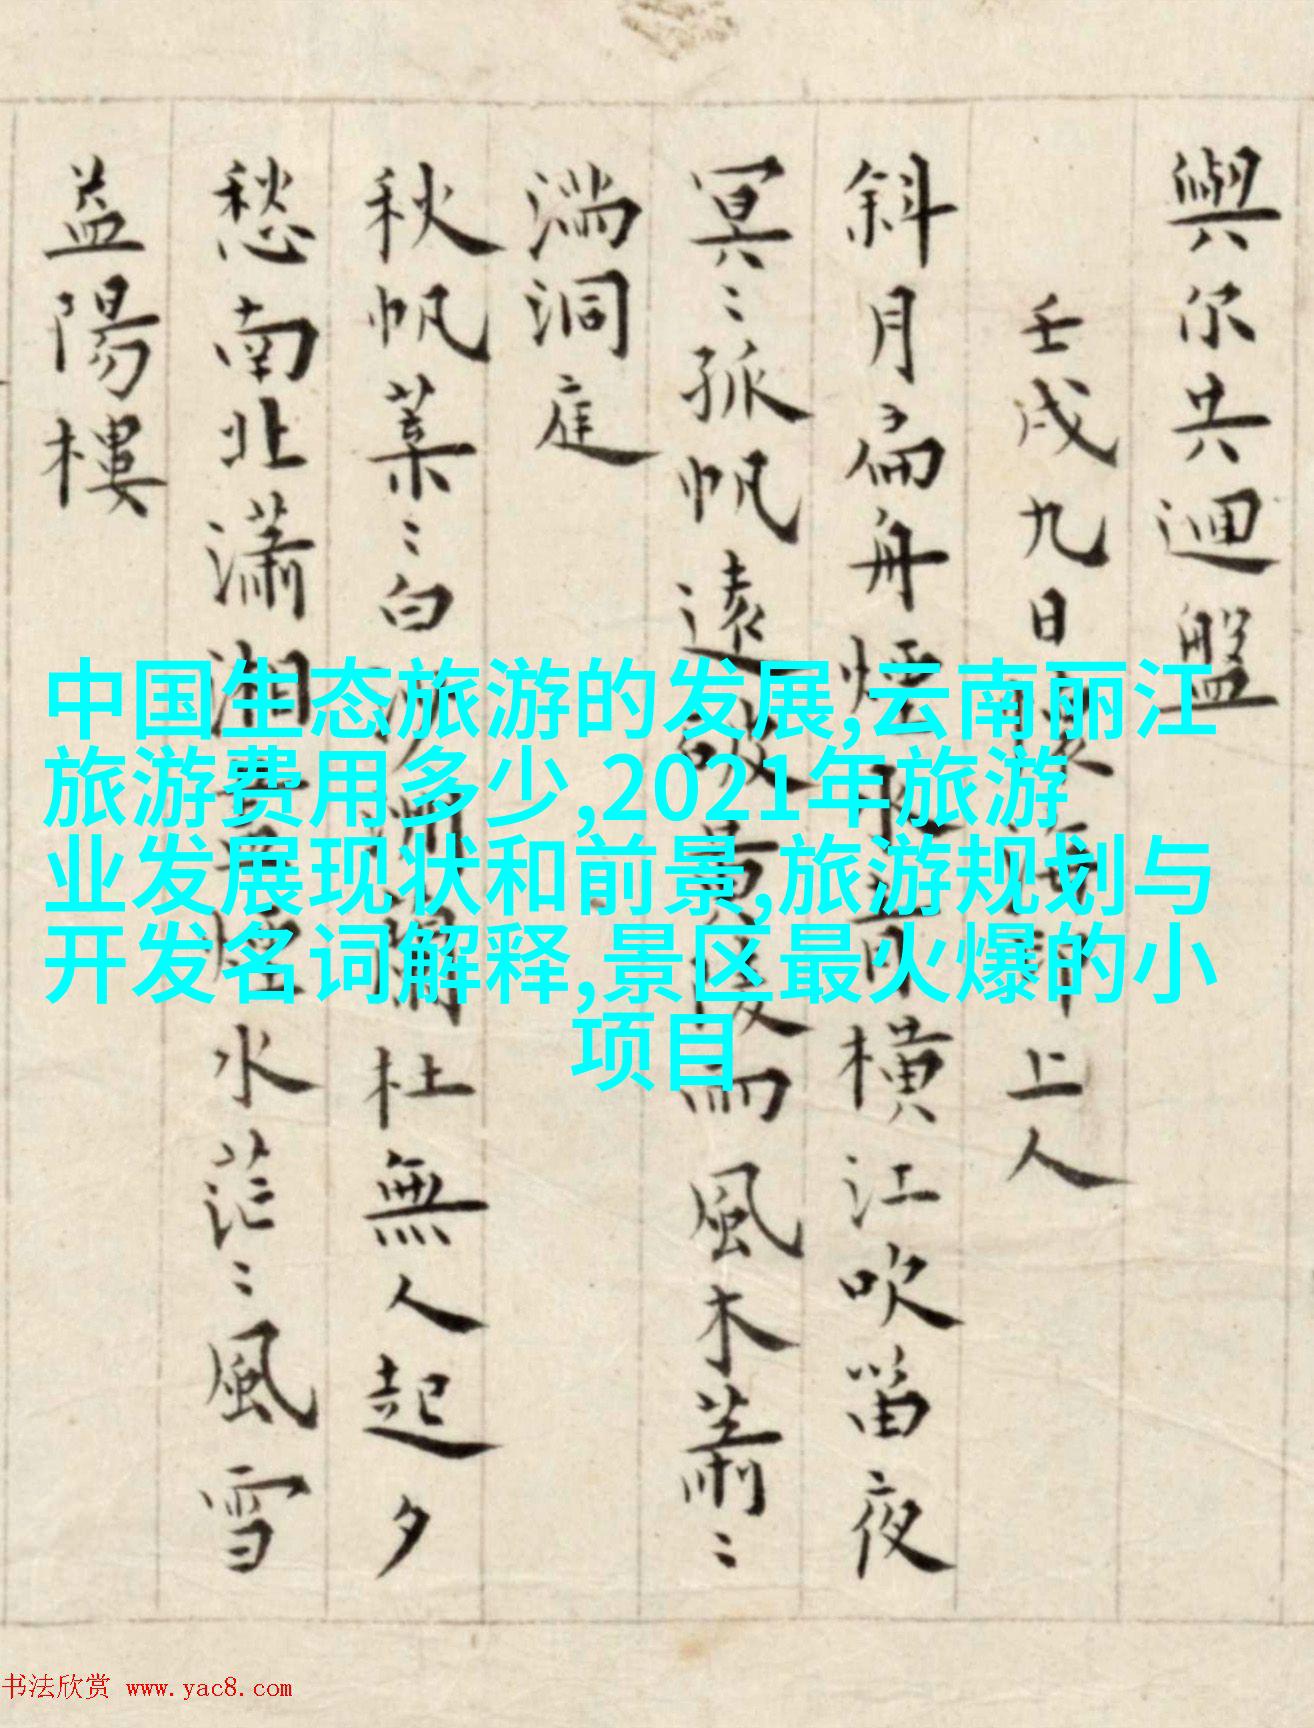 與尔共迴盤
壬戌九日上人
斜月扁舟煙橫江吹笛夜
冥〻孤帆遠而風木蕭〻
湍洞庭
秋帆葉〻白杜無人起夕
愁南北瀟湘水茫〻風雪
益陽樓
中国生态旅游的发展,云南丽江
旅游费用多少,2021年旅游
业发展现状和前景,旅游规划与
开发名词解释,景区最火爆的小
项目
书法欣赏 www.yac8.com